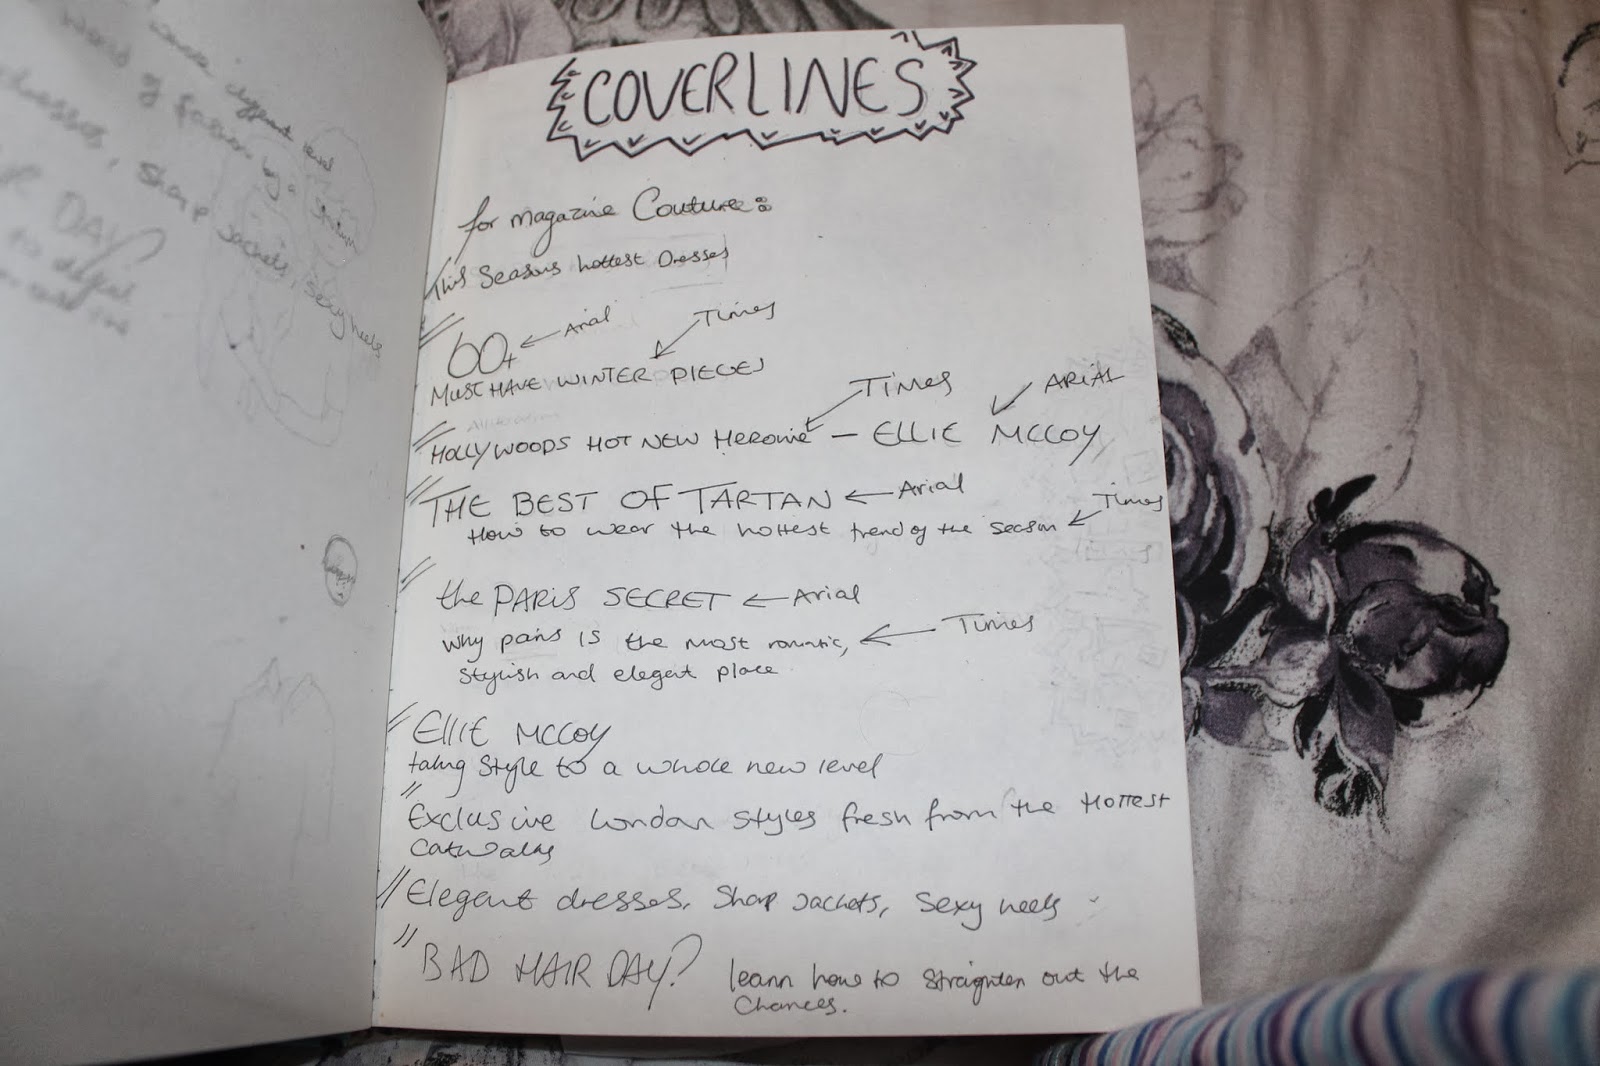 COVERLINES
for magazine Couture:
This Seasons hottest Dresses
60+ ← Arial
Times
MUST HAVE WINTER PIECES
TIMES
ARIAL
HOLLYWOODS HOT NEW HEROINE – ELLIE MCCOY
THE BEST OF TARTAN ← Arial
Times
How to wear the hottest trend of the season ←
the PARIS SECRET ← Arial
why paris is the most romantic, ← Times
stylish and elegant place.
ELLIE MCCOY
taking style to a whole new level
Exclusive London styles fresh from the HOTTEST
catwalks
Elegant dresses, Sharp Jackets, Sexy heels
BAD HAIR DAY? learn how to straighten out the
Chances.
different
world of
dresses, sharp jackets, sexy heels
DAY?